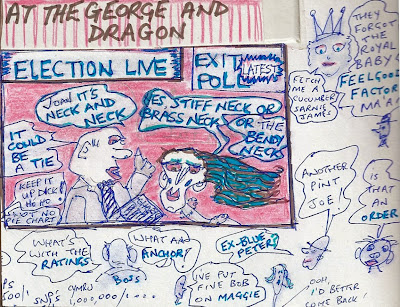 AT THE GEORGE AND
DRAGON
ELECTION LIVE
EXIT
POLL
LATEST
JOAN IT'S
NECK AND
NECK
YES, STIFF NECK OR
BRASS NECK
OR THE
BENDY
NECK
IT COULD
BE
A TIE
KEEP IT
UP DICK!
HO HO
NO
PIE CHART
THEY
FORGOT
THE
ROYAL
BABY
FEELGOOD
FACTOR
MA'A
FETCH
ME A
CUCUMBER
SARNIE
JAMES
ANOTHER
PINT
JOE!
IS
THAT
AN
ORDER
WHAT'S
WITH THE
RATINGS
BOJS
WHAT AN
ANCHOR!
EX-BLUE
PETER?
I'VE PUT
FIVE BOB
ON MAGGIE
OOH
I'D BETTER
COME BACK
500/1
SNPS
CYMRU
1,000,000/1